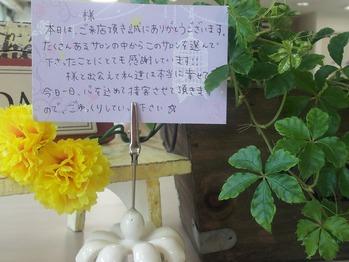 様
本日は、ご来店頂き誠にありがとうございます。
たくさんあるサロンの中からこのサロンを選んで
下さったことにとても感謝しています!!
様と出会えて私達は本当に幸せです
今日一日、心を込めて接客させて頂きます
ので、ごゆっくりしていって下さい☆